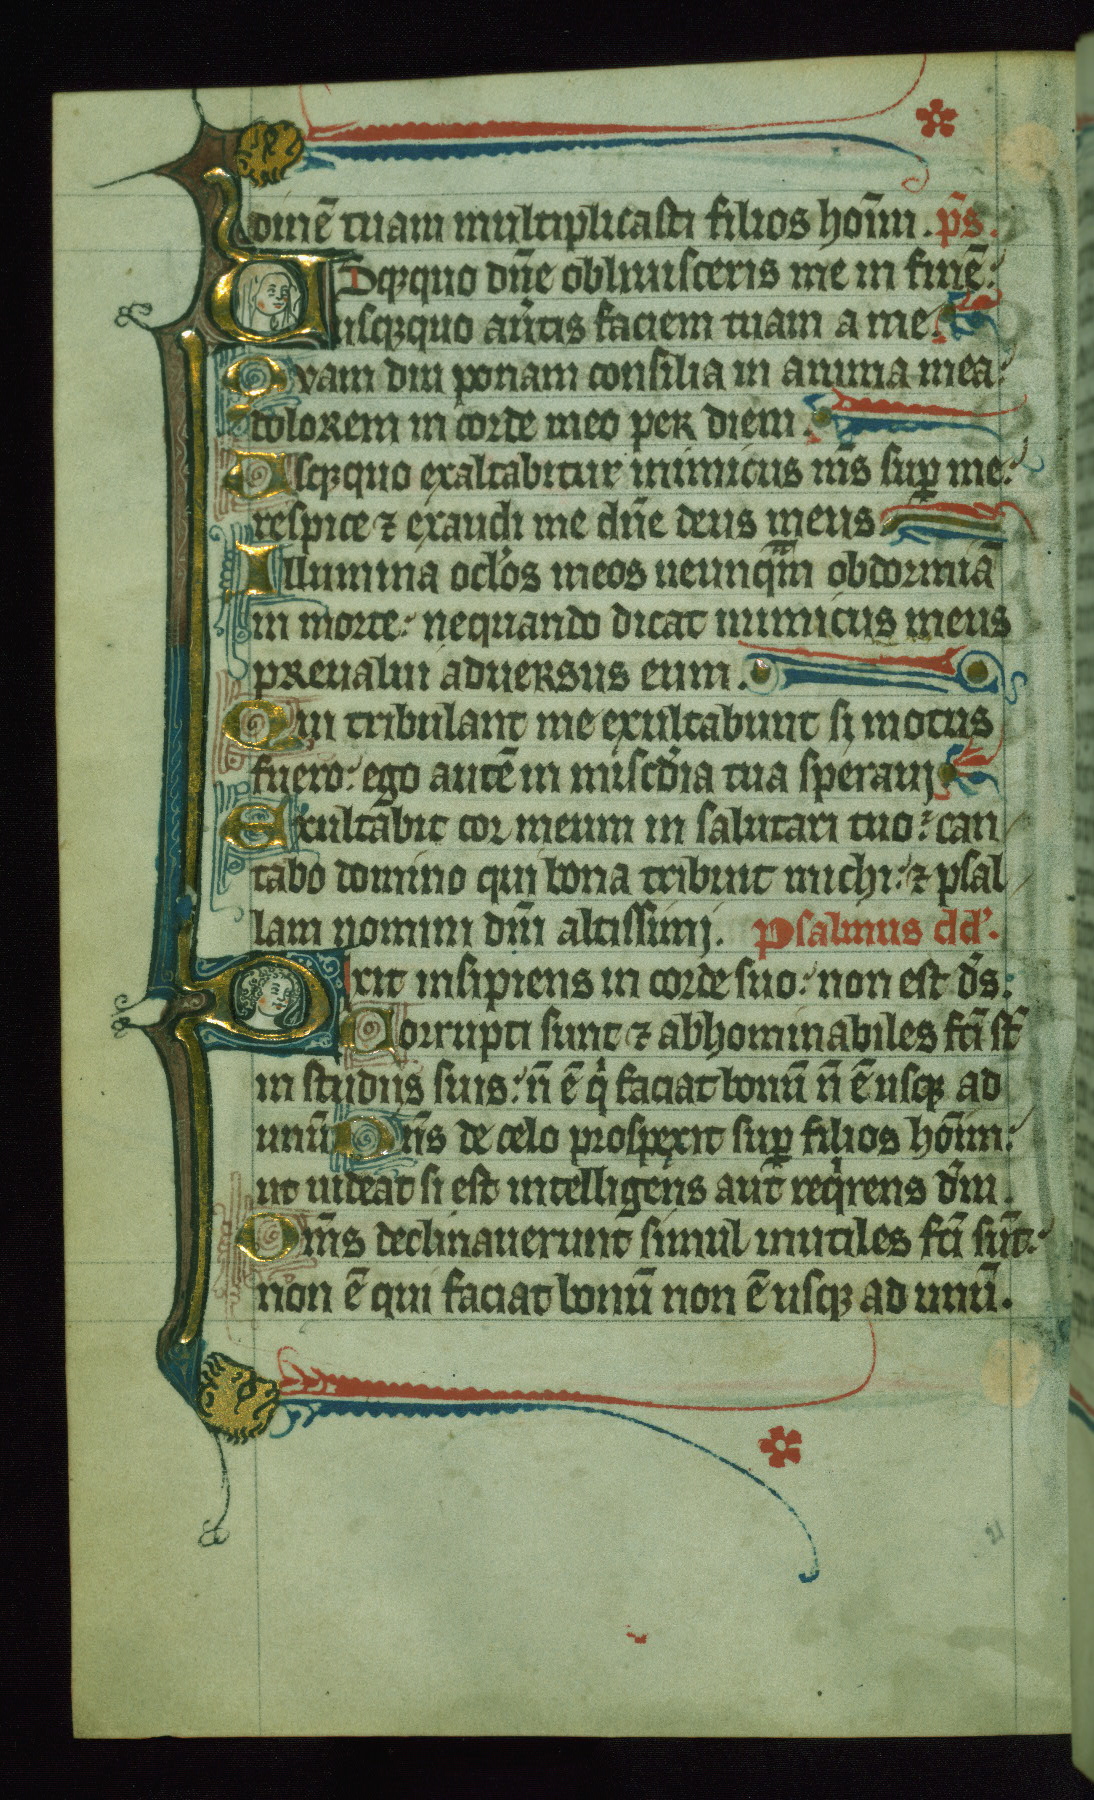 dinē tuam multiplicasti filios hoīm . p̄s.
Usqꝫquo dn̄e obliuisceris me in finē:
usqꝫquo au̾tis faciem tuam a me.
Quam diu ponam consilia in anima mea:
dolorem in corde meo per diem .
Usqꝫquo exaltabitur inimicus m̄s sup̱ me:
respice ⁊ exaudi me dn̄e deus meus.
Illumina oclo̾s meos ne unq̄m obdormiā
in morte: nequando dicat inimicus meus
preualui aduersus eum .
Qui tribulant me exultabunt si motus
fuero: ego autē in misc̾dia tua speraui
Exultabit cor meum in salutari tuo: can
tabo domino qui bona tribuit michi: ⁊ psal
lam nomini dn̄i altissimi. Psalmus dd̾.
Dixit insipiens in corde suo: non est d̄s:
Corrupti sunt ⁊ abhominabiles fc̄i st̄
in studijs suis: n̄ ē qͥ faciat bonū n̄ ē usqꝫ ad
unū Dn̄s de celo prospexit sup̱ filios hoīm:
ut uideat si est intelligens aut reqͥrens dm̄ .
Om̄s declinauerunt simul inutiles fc̄i sūt:
non ē qui faciat bonū non ē usqꝫ ad unū.
21